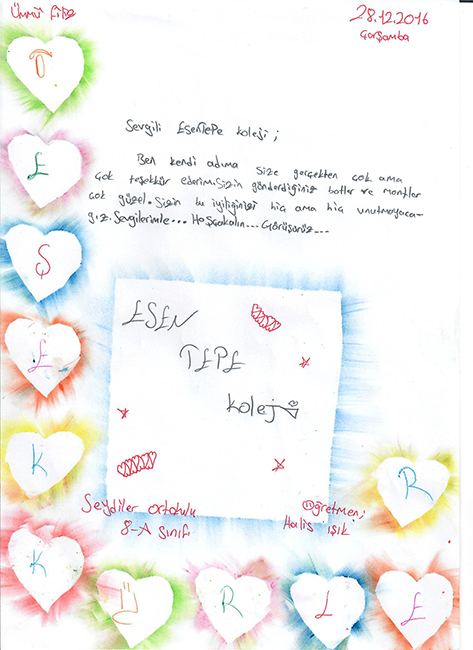 Ümmü Filiz
28.12.2016
Çarşamba
Sevgili Esentepe Koleji;
Ben kendi adıma size gerçekten çok ama
çok teşekkür ederim.Sizin gönderdiğiniz botlar ve montlar
çok güzel. Sizin bu iyiliğinizi hiç ama hiç unutmayaca-
ğız.Sevgilerimle... Hoşçakalın... Görüşürüz...
T
E
Ş
E
K
K
Ü
R
L
E
R
ESEN
TEPE
Koleji
Seydiler Ortokulu
8-A sınıfı
Öğretmen;
Halis ışık